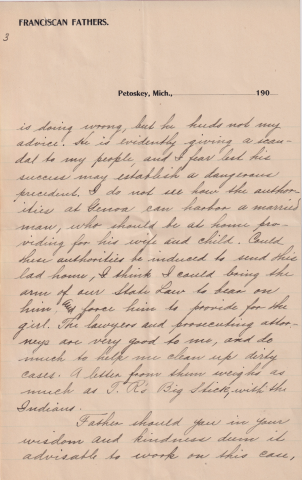 FRANCISCAN FATHERS.
3
Petoskey, Mich., 190
is doing wrong, but he heeds not my
advice. He is evidently giving a scan-
dal to my people, and I fear lest his
success may establish a dangerous
precedent. I do not see how the author-
ities at Genoa can harbor a married
man, who should be at home pro-
viding for his wife and child. Could
these authorities be induced to send this
lad home, I think I could bring the
arm of our State Law to bear on
him, and force him to provide for the
girl. The lawyers and prosecuting attor-
neys are very good to me, and do
much to help me clean up dirty
cases. A letter from them weighs as
much as T. R's Big Stick, with the
Indians.
Father should you in your
wisdom and kindness deem it
advisable to work on this case,